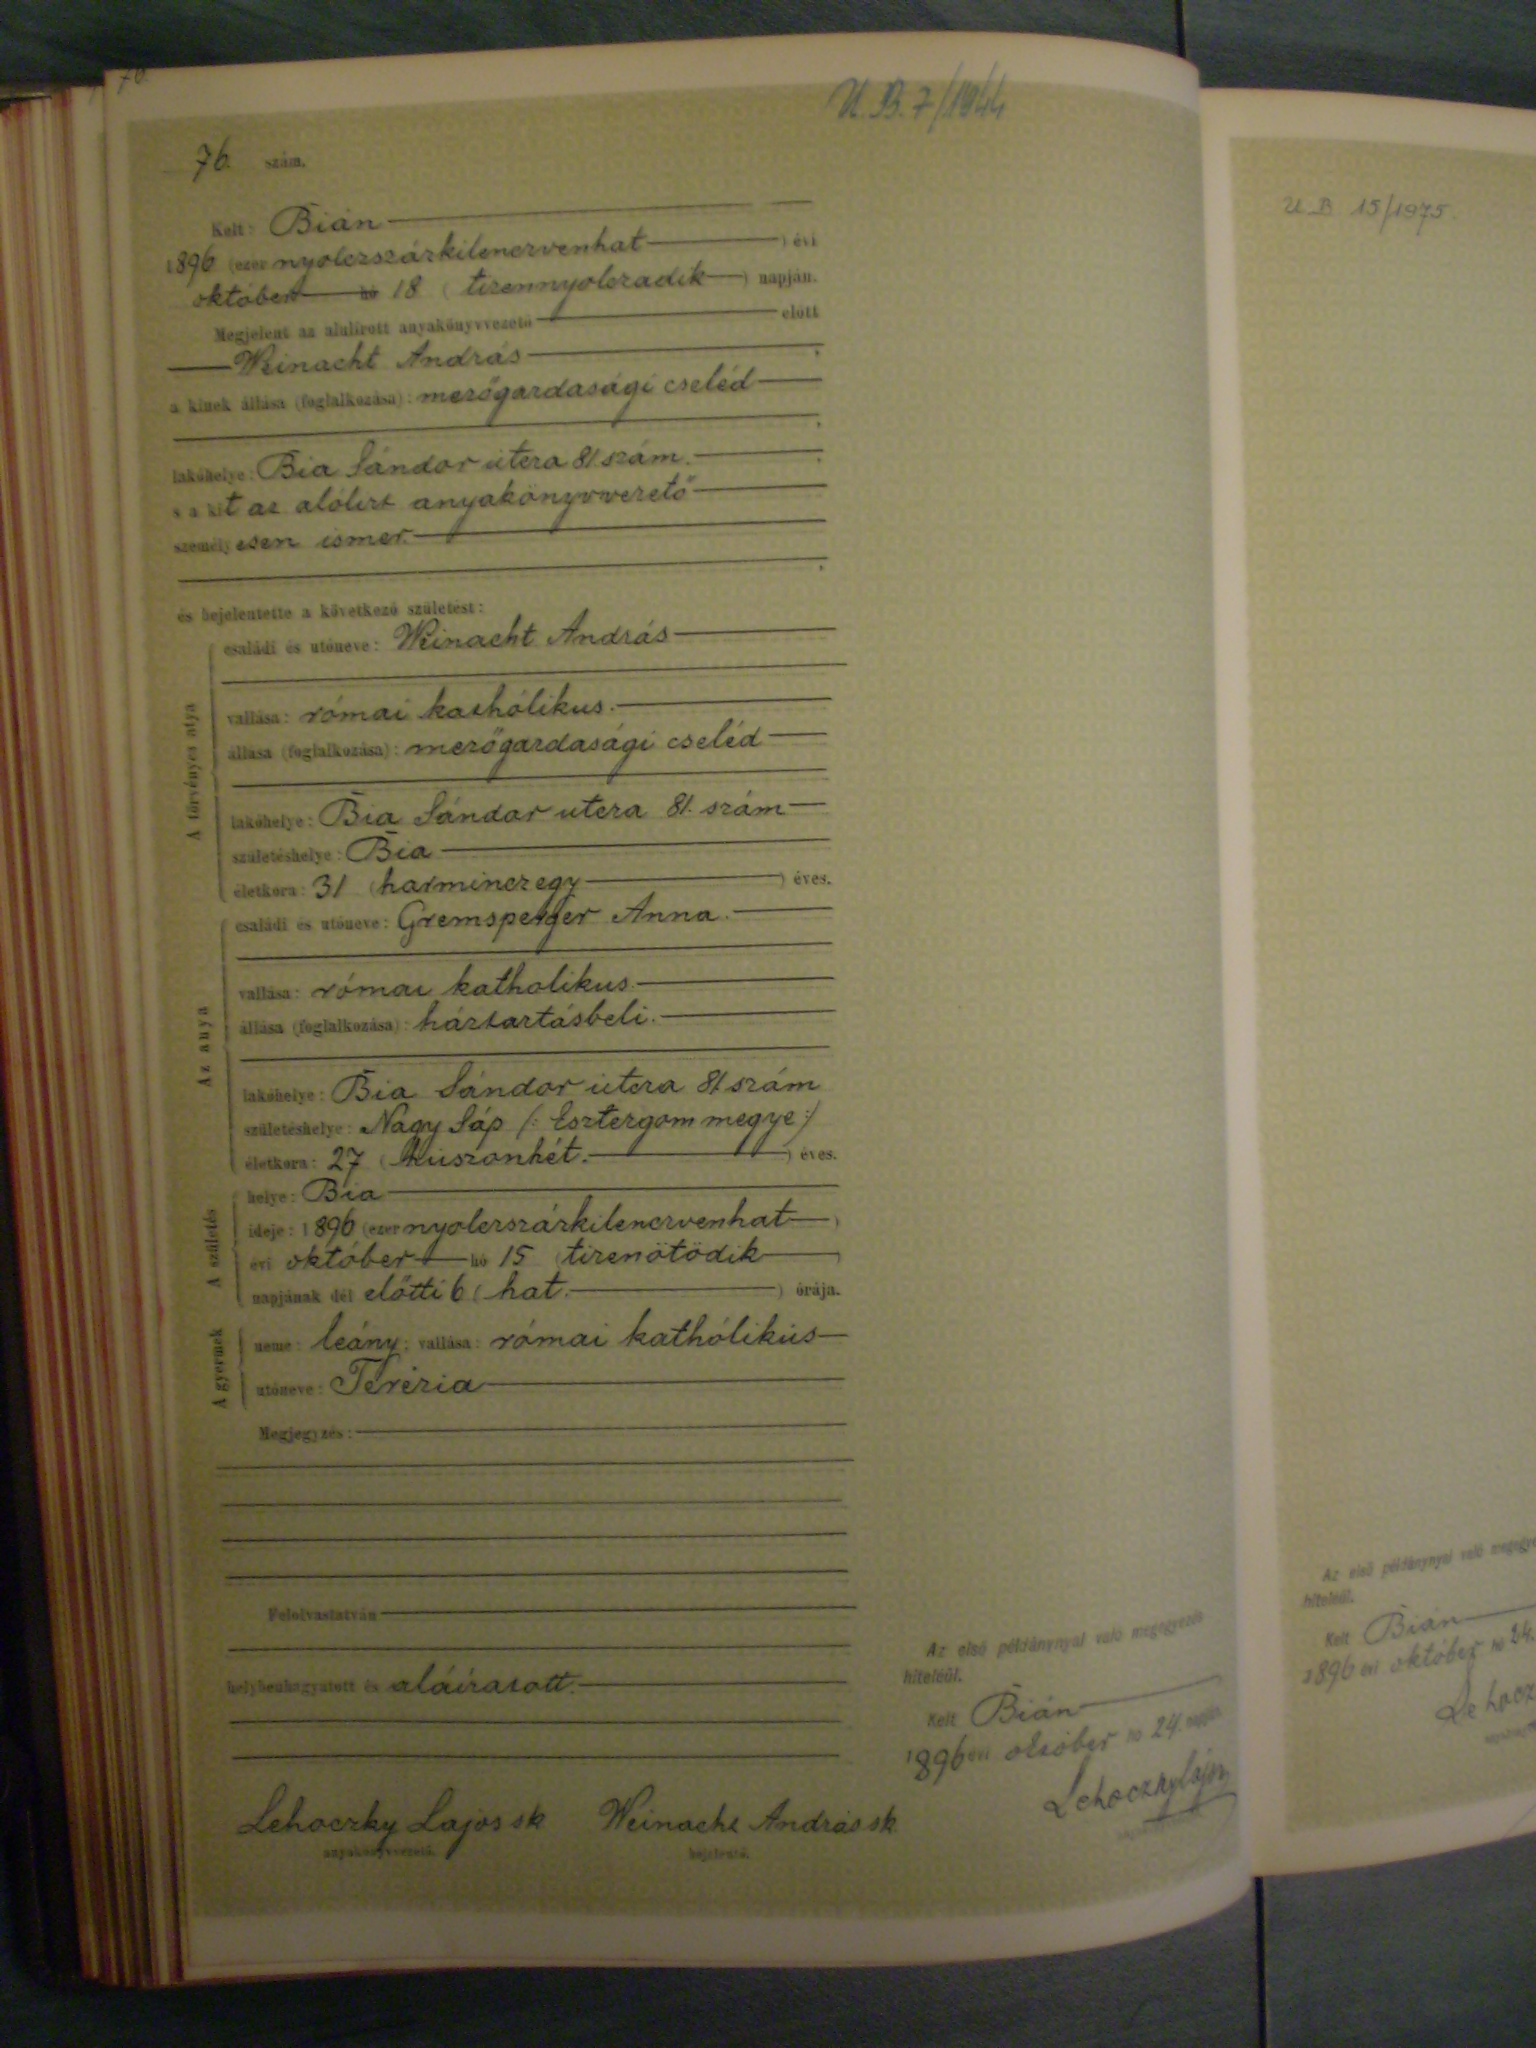 76.
U. B. 7/1944
76. szám.
Kelt: Bián
1896 (ezer nyolczszázkilenczvenhat) évi
október hó 18 (tizennyolczadik) napján.
Megjelent az alulirott anyakönyvvezető előtt
Weinacht András
a kinek állása (foglalkozása): mezőgazdasági cseléd
lakóhelye: Bia Sándor utcza 81 szám.
s a kit az alólirt anyakönyvvezető
személyesen ismer.
és bejelentette a következő születést:
A törvényes atya
családi és utóneve: Weinacht András
vallása: római kathólikus.
állása (foglalkozása): mezőgazdasági cseléd
lakóhelye: Bia Sándor utcza 81. szám
születéshelye: Bia
életkora: 31 (harminczegy) éves.
Az anya
családi és utóneve: Gremsperger Anna.
vallása: római katholikus.
állása (foglalkozása): háztartásbeli.
lakóhelye: Bia Sándor utcza 81 szám
születéshelye: Nagy Sáp (: Esztergom megye :)
életkora: 27 (huszonhét.) éves.
A születés
helye: Bia
ideje: 1896 (ezer nyolczszázkilenczvenhat)
évi október hó 15 (tizenötödik)
napjának dél előtti 6 (hat.) órája.
A gyermek
neme: leány; vallása: római kathólikus
utóneve: Terézia
Megjegyzés:
Felolvastatván
helybenhagyatott és aláiratott.
Lehoczky Lajos sk Weinacht András sk
anyakönyvvezető. bejelentő.
Az első példánynyal való megegyezés
hiteléül.
Kelt Bián
1896 évi október hó 24. napján
Lehoczky Lajos
U. B. 15/1975.
Az első példánynyal való
hiteléül.
Kelt Bián
1896 évi október hó 24.